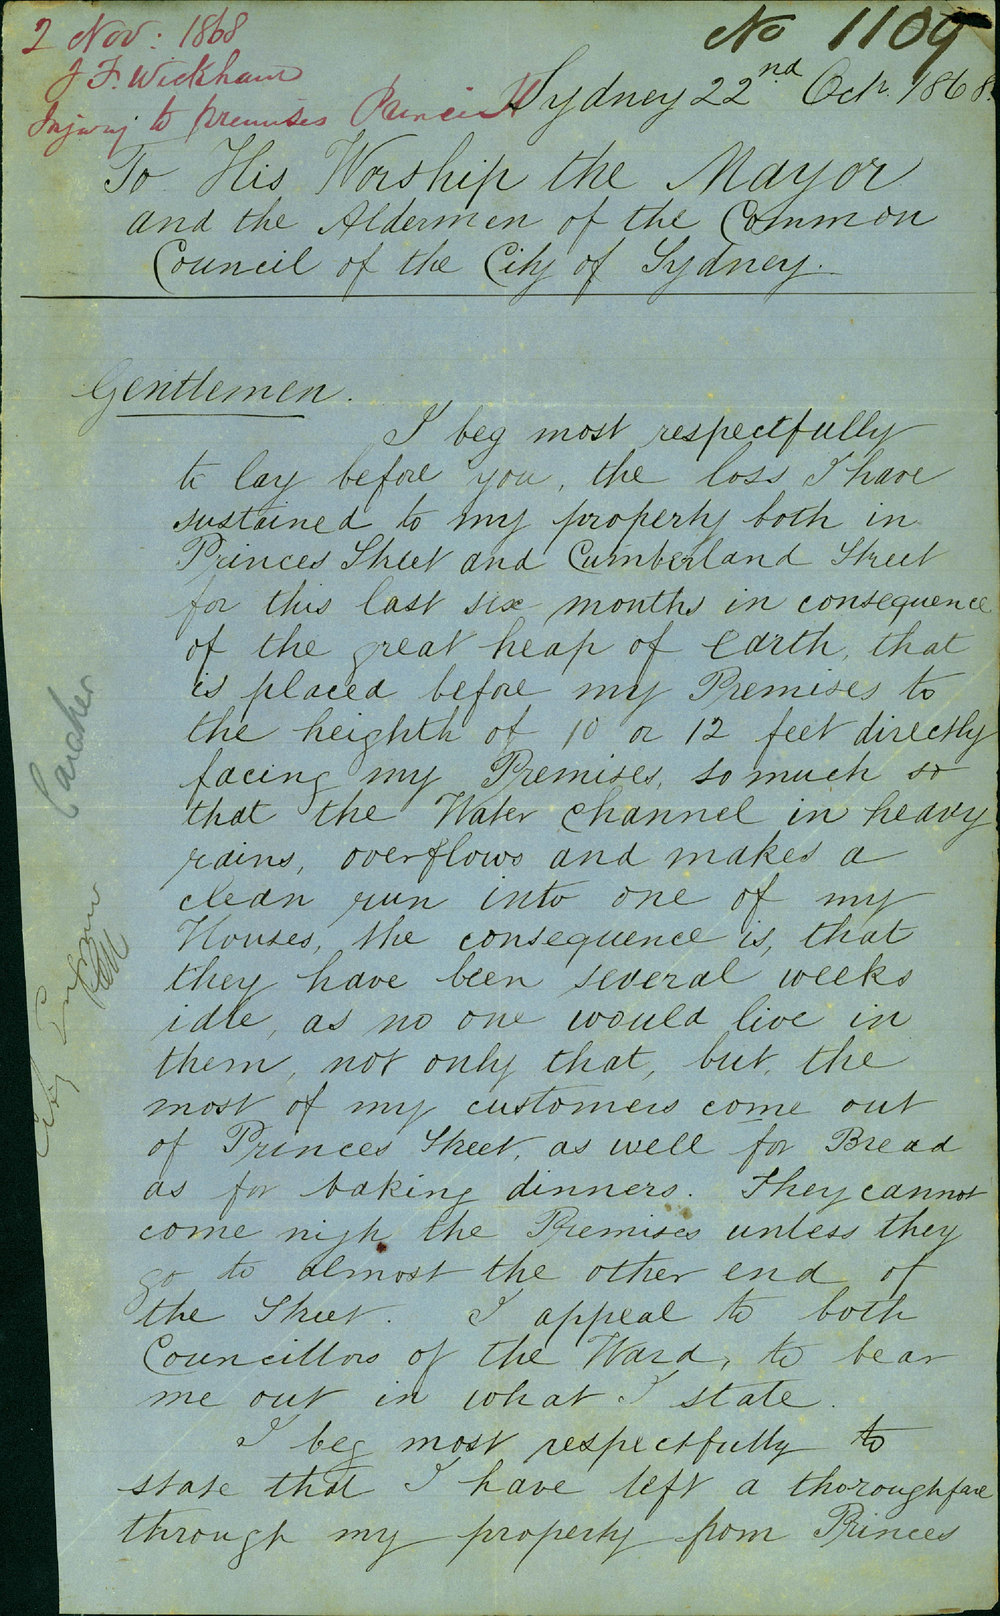 2 Nov: 1868
J F. Wickham
Injury to premises Princes St
No 1109
Sydney 22nd Octr. 1868.
To His Worship the Mayor
and the Aldermen of the Common
Council of the City of Sydney.
Gentlemen.
I beg most respectfully
to lay before you, the loss I have
sustained to my property both in
Princes Street and Cumberland Street
for this last six months in consequence
of the great heap of earth, that
is placed before my Premises to
the heighth of 10 or 12 feet directly
facing my Premises, so much so
that the Water channel in heavy
rains, overflows and makes a
clean run into one of my
Houses, the consequence is, that
they have been several weeks
idle, as no one would live in
them, not only that, but, the
most of my customers come out
of Princes Street, as well for Bread
as for baking dinners. They cannot
come nigh the Premises unless they
go to almost the other end of
the Street. I appeal to both
Councillors of the Ward, to bear
me out in what I state.
I beg most respectfully to
state that I have left a thoroughfare
through my property from Princes
City Engineer